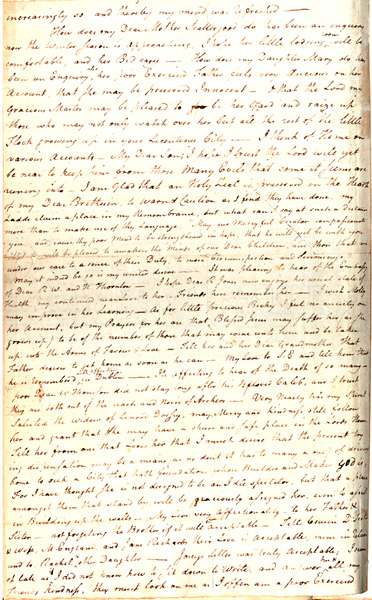 increasingly so, and thereby my mind was refreshed
How does my Dear Mother Scattergood do has been an enquiry
now the Winter season is approaching, I hope her little lodging room will be
comfortable, and her Bed cares — How does my Daughter Mary do has
been an Enquiry, her poor Exercised Father feels very Anxious on her
Account, that she may be preserved Innocent — O that the Lord my
Gracious Master may be pleased to be her Guard and raize up
those who may not only watch over her but all the rest of the little
Flock growing up in your Licentious City — I think of thee on
various Accounts — My Dear Son I hope & trust the Lord will yet
be near to keep him from those Many Evils that some of
running into — I am Glad that an Holy Zeal is preserved on the Hearts
of my Dear Brethren, to Warn & Caution as I find they have done, my
claim a place in my Remembrance, but what can I say at such a Distance
more than to make use of this Language May our Merciful Creator compassionate
you, and raise thy poor Mind to be strengthened in hope that he will yet be with you
that he will be pleased to awaken the Minds of our Dear Children, and those that are
under our care to a sence of their Duty, to more Circumspection and
may it indeed be so is my united desire — It was pleasing to hear of the
of Dear R. W. and H Thornton — I hope Dear R Jones now enjoys her usual
Health my continued nearness to her, Friends here remember her —
may improve in her Learning — As for little precious Becky I feel no anxiety on
her Account, but my Prayers for her are that Blessed Jesus may suffer her, (as she
grows up) to be of the number of those that may come unto him and be taken
up into the Arms of Favour & Love. Tell her and her Dear Grandmother That
Father desires to get home as soon as he can — My Love to S E and tell him that
he is Remembered in Dublin — Its affecting to hear of the Death of so many
poor Dear Thomson did not stay long after his beloved Caleb, and I trust
they are both out of the reach and Noise of Archers — Very Nearly has my Spirit
Saluted the widow of Lenor Dorsey, may Mercy and Kindness still follow
her and grant that she may have a sure and safe place in the Lords House
Tell her from one that loves her that I must desire that the present try
ing dispensation may be a means as no doubt it has to many a one, of driving
home to such a City that hath foundations whose Builder and Maker GOD is
For I have thought she is not designed to be an Idle spectator, but that a place
amongst them that stand by will be graciously assigned her, even to assist
in Building up the walls — My love very affectionately to thy Father &
Sister — not forgetting the Brother if it will be acceptable — Tell Cousin D
& wife, McEnglan and Ann Richards their Love is Acceptable, mine in return
and to Rachel the Daughter — Joseys Letter was truly Acceptable, I am
of late as if I did not know how to sit down to Write, and answer all my
Friends Kindness, they must look on me as I often am a poor Exercised